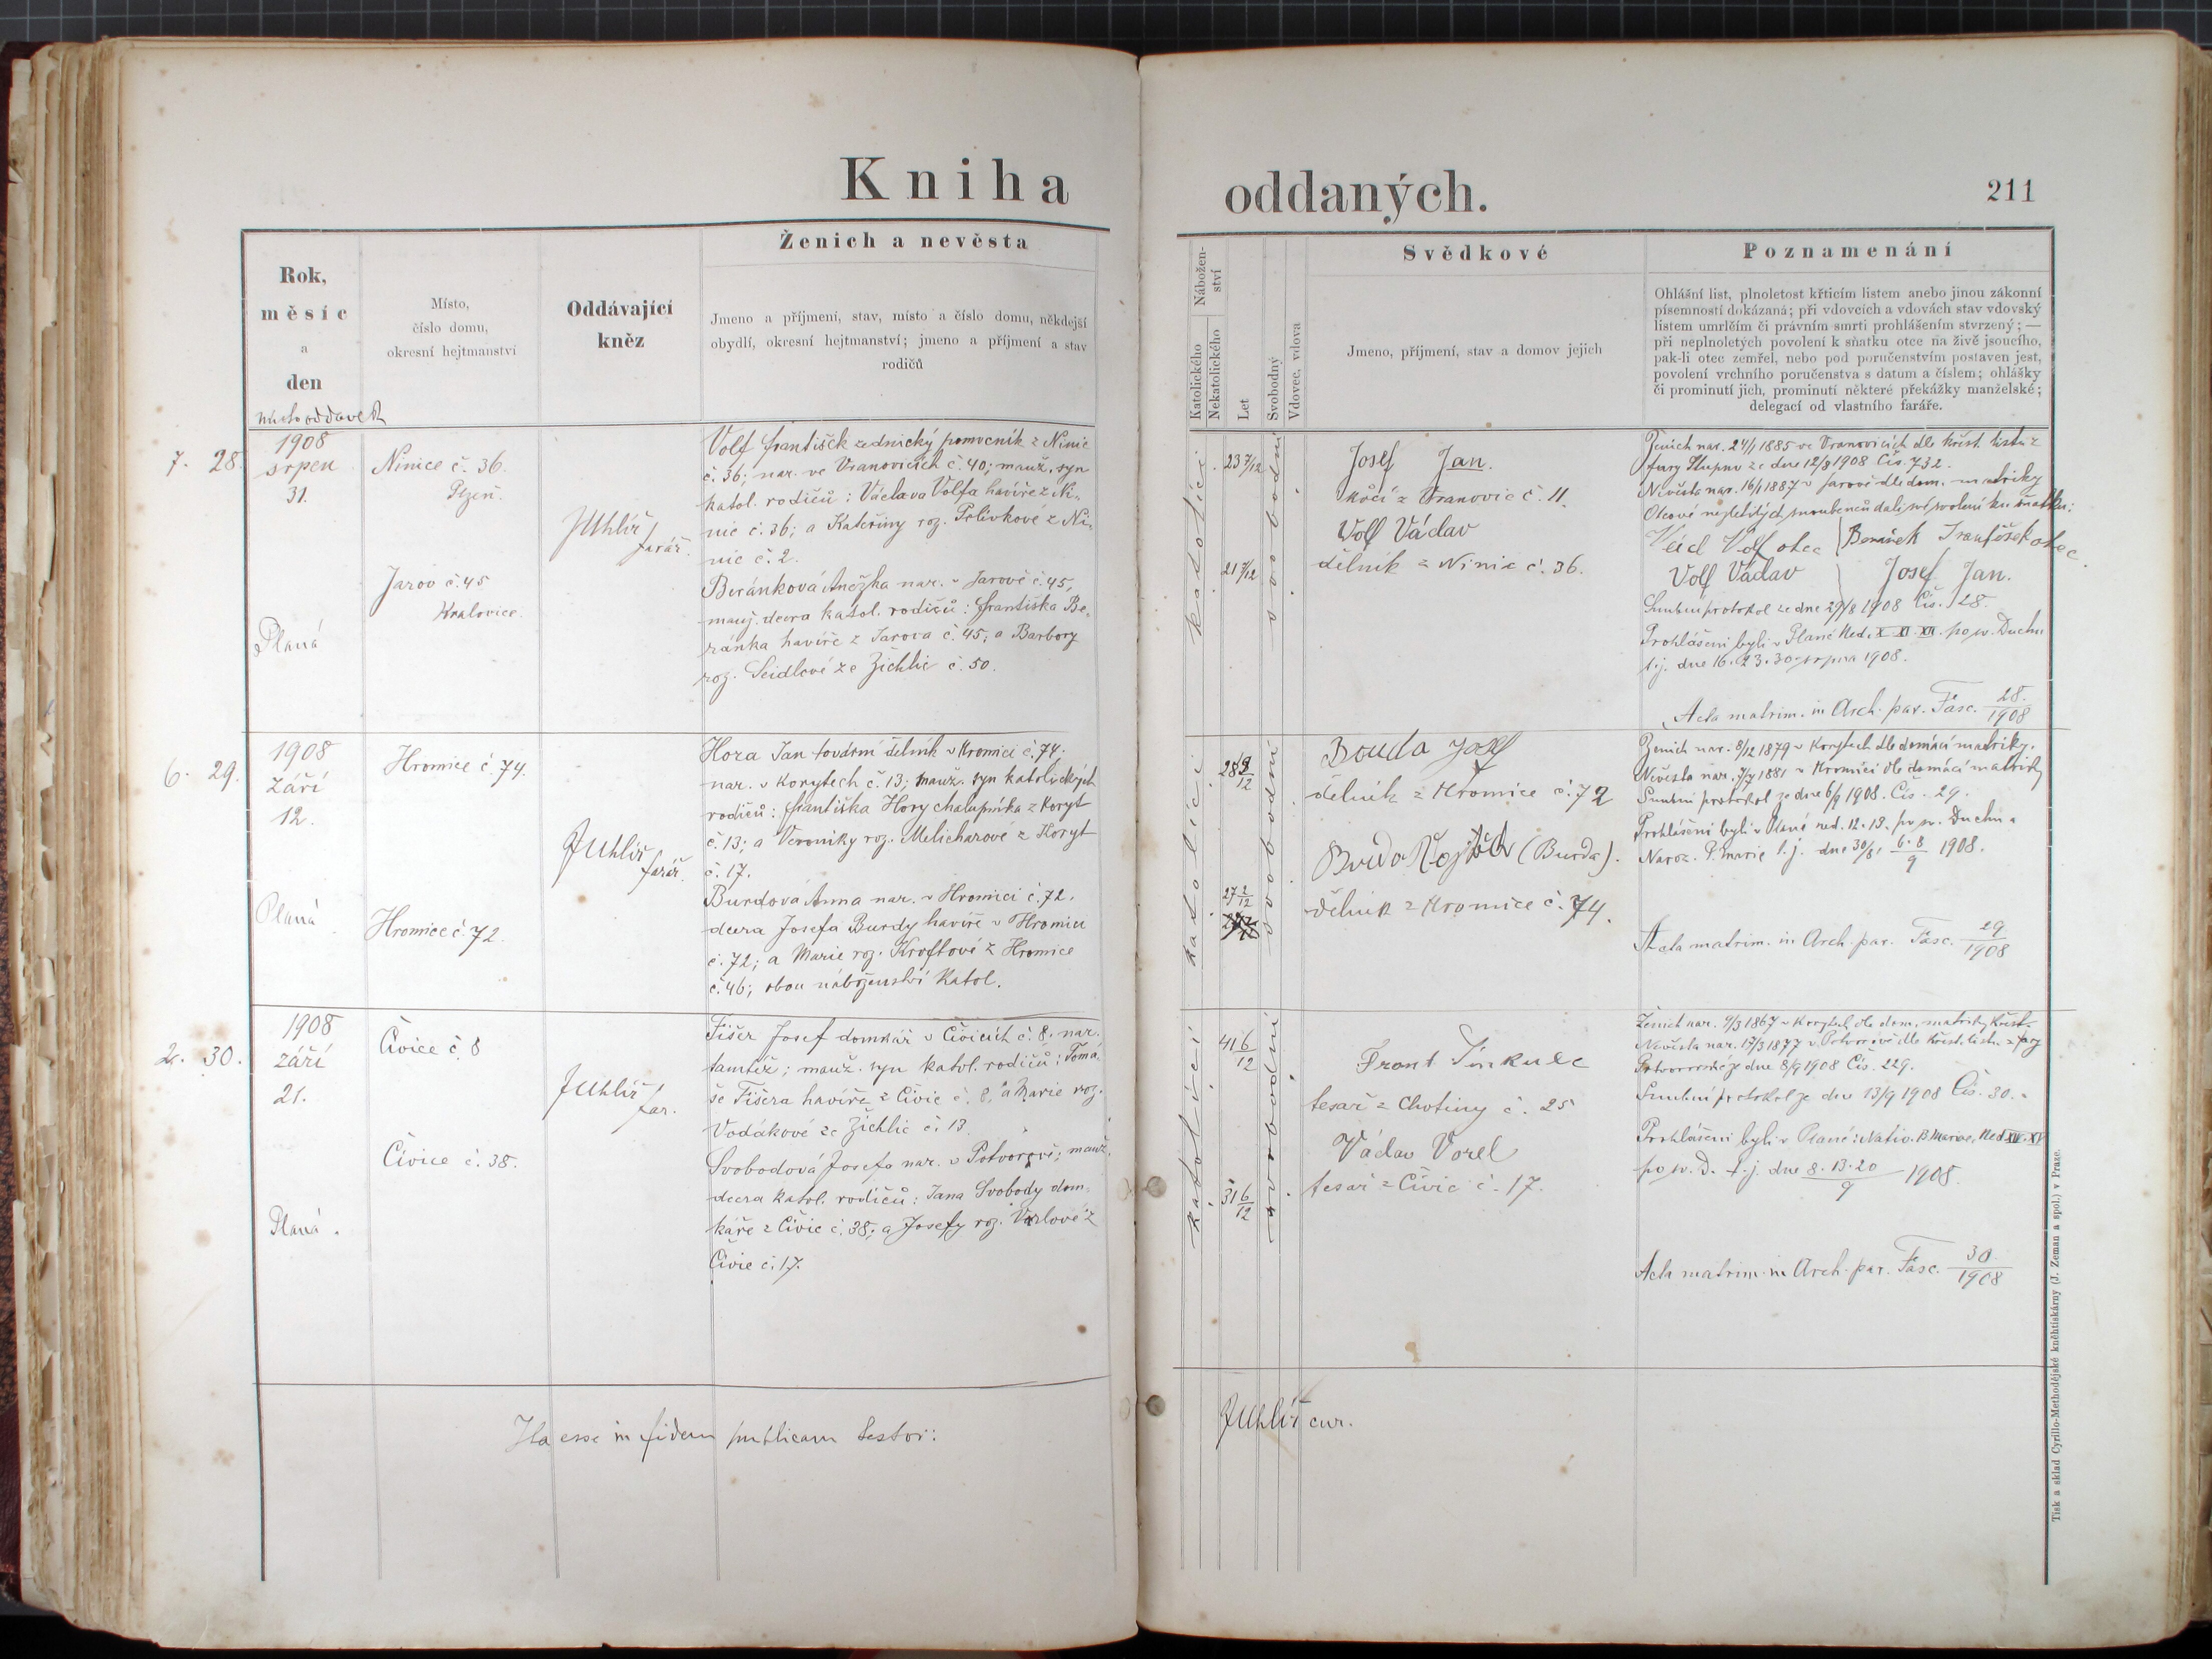 Kniha oddaných.
211
Rok,
měsíc
a
den
Místo,
číslo domu,
okresní hejtmanství
Oddávající
kněz
Ženich a nevěsta
Jmeno a příjmení, stav, místo a číslo domu, někdejší
obydlí, okresní hejtmanství; jmeno a příjmení a stav
rodičů
7. 28.
1908
srpen
31.
Planá
Ninice č. 36.
Plzeň.
Jarov č. 45
Kralovice.
JUhlíř
farář.
Volf František zednický pomocník z Ninic
č. 36; nar. ve Vranovicích č. 40; manž. syn
katol. rodičů: Václava Volfa havíře z Ni-
nic č. 36; a Kateřiny roz. Polívkové z Ni-
nic č. 2.
Beránková Anežka nar. v Jarově č. 45,
manž. dcera katol. rodičů: Františka Be-
ránka havíře z Jarova č. 45; a Barbory
roz. Seidlové ze Žichlic č. 50.
6. 29.
1908
září
12.
Planá
Hromice č. 74.
Hromice č. 72.
JUhlíř
farář.
Hora Jan tovární dělník v Hromici č. 74.
nar. v Korytech č. 13; manž. syn katolických
rodičů: Františka Hory chalupníka z Koryt
č. 13; a Veroniky roz. Melicharové z Koryt
č. 17.
Burdová Anna nar. v Hromici č. 72.
dcera Josefa Burdy havíře v Hromici
č. 72; a Marie roz. Kroftové z Hromice
č. 46; obou náboženství katol.
2. 30.
1908
září
21.
Planá.
Čivice č. 8
Čívice č. 38.
JUhlíř
far.
Fišer Josef domkář v Čivicích č. 8. nar.
tamtéž; manž. syn katol. rodičů: Tomá-
še Fišera havíře z Čivic č. 8, a Marie roz.
Vodákové ze Žichlic č. 13.
Svobodová Josefa nar. v Potvorově; manž.
dcera katol. rodičů: Jana Svobody dom-
káře z Čivic č. 38; a Josefy roz. z
Čivic č. 17.
Ita esse in fidem publicam testor:
Nábožen-
ství
Katolického
Nekatolického
Let
Svobodný
Vdovec, vdova
Svědkové
Jmeno, příjmení, stav a domov jejich
Poznamenání
Ohlášní list, plnoletost křticím listem anebo jinou zákonní
písemností dokázaná; při vdovcích a vdovách stav vdovský
listem umrlčím či právním smrti prohlášením stvrzený; —
při neplnoletých povolení k sňatku otce na živě jsoucího,
pak-li otec zemřel, nebo pod poručenstvím postaven jest,
povolení vrchního poručenstva s datum a číslem; ohlášky
či prominutí jich, prominutí některé překážky manželské;
delegací od vlastního faráře.
katolíci
23 7/12
21 7/12
svobodní
Josef Jan.
kočí z Vranovic č. 11.
Volf Václav
dělník z Ninic č. 36.
Ženich nar. 24/1 1885 ve Vranovicích dle křest. listu z
fary Stupno ze dne 12/8 1908 Čís. 732.
Nevěsta nar. 16/1 1887 v Jarově dle dom. matriky
Otcové nezletilých snoubenců dali své svolení ku sňatku:
Volf otec Beránek František otec.
Volf Václav Josef Jan.
Snubní protokol ze dne 29/8 1908 Čís. 28.
Prohlášeni byli v Plané Ned. X. XI. XII. po sv. Duchu
t. j. dne 16. 23. 30. srpna 1908.
Acta matrim. in Arch. par. Fasc. 28./1908
katolíci
28 9/12
27 2/12
svobodní
Bouda Josef
dělník z Hromice č. 72
Vojtěch (Burda).
dělník z Hromice č. 74.
Ženich nar. 8/12 1879 v Korytech dle domácí matriky.
Nevěsta nar. 7/7 1881 v Hromici dle domácí matriky
Snubní protokol ze dne 6/9 1908. Čís. 29.
Prohlášeni byli v Plané ned. 12. 13. po sv. Duchu a
Naroz. P. Marie t. j. dne 30/8, 6. 8/9 1908.
Acta matrim. in Arch. par. Fasc. 29./1908
katolíci
41 6/12
31 6/12
svobodní
Frant Šinkule
tesař z Chotiny č. 25
Václav Vorel
tesař z Čívic č. 17.
Ženich nar. 9/3 1867 v Korytech dle dom. matriky křest.
Nevěsta nar. 17/3 1877 v Potvorově dle křest. listu z fary
Potvorovské ze dne 8/9 1908 Čís. 229.
Snubní protokol ze dne 13/9 1908 Čís. 30.
Prohlášeni byli v Plané: Nativ. B. Mariae, Ned. XIV. XV
po sv. D. t. j. dne 8. 13. 20/9 1908.
Acta matrim. in Arch. par. Fasc. 30./1908
JUhlíř cur.
Tisk a sklad Cyrillo-Methodějské kněhtiskárny (J. Zeman a spol.) v Praze.